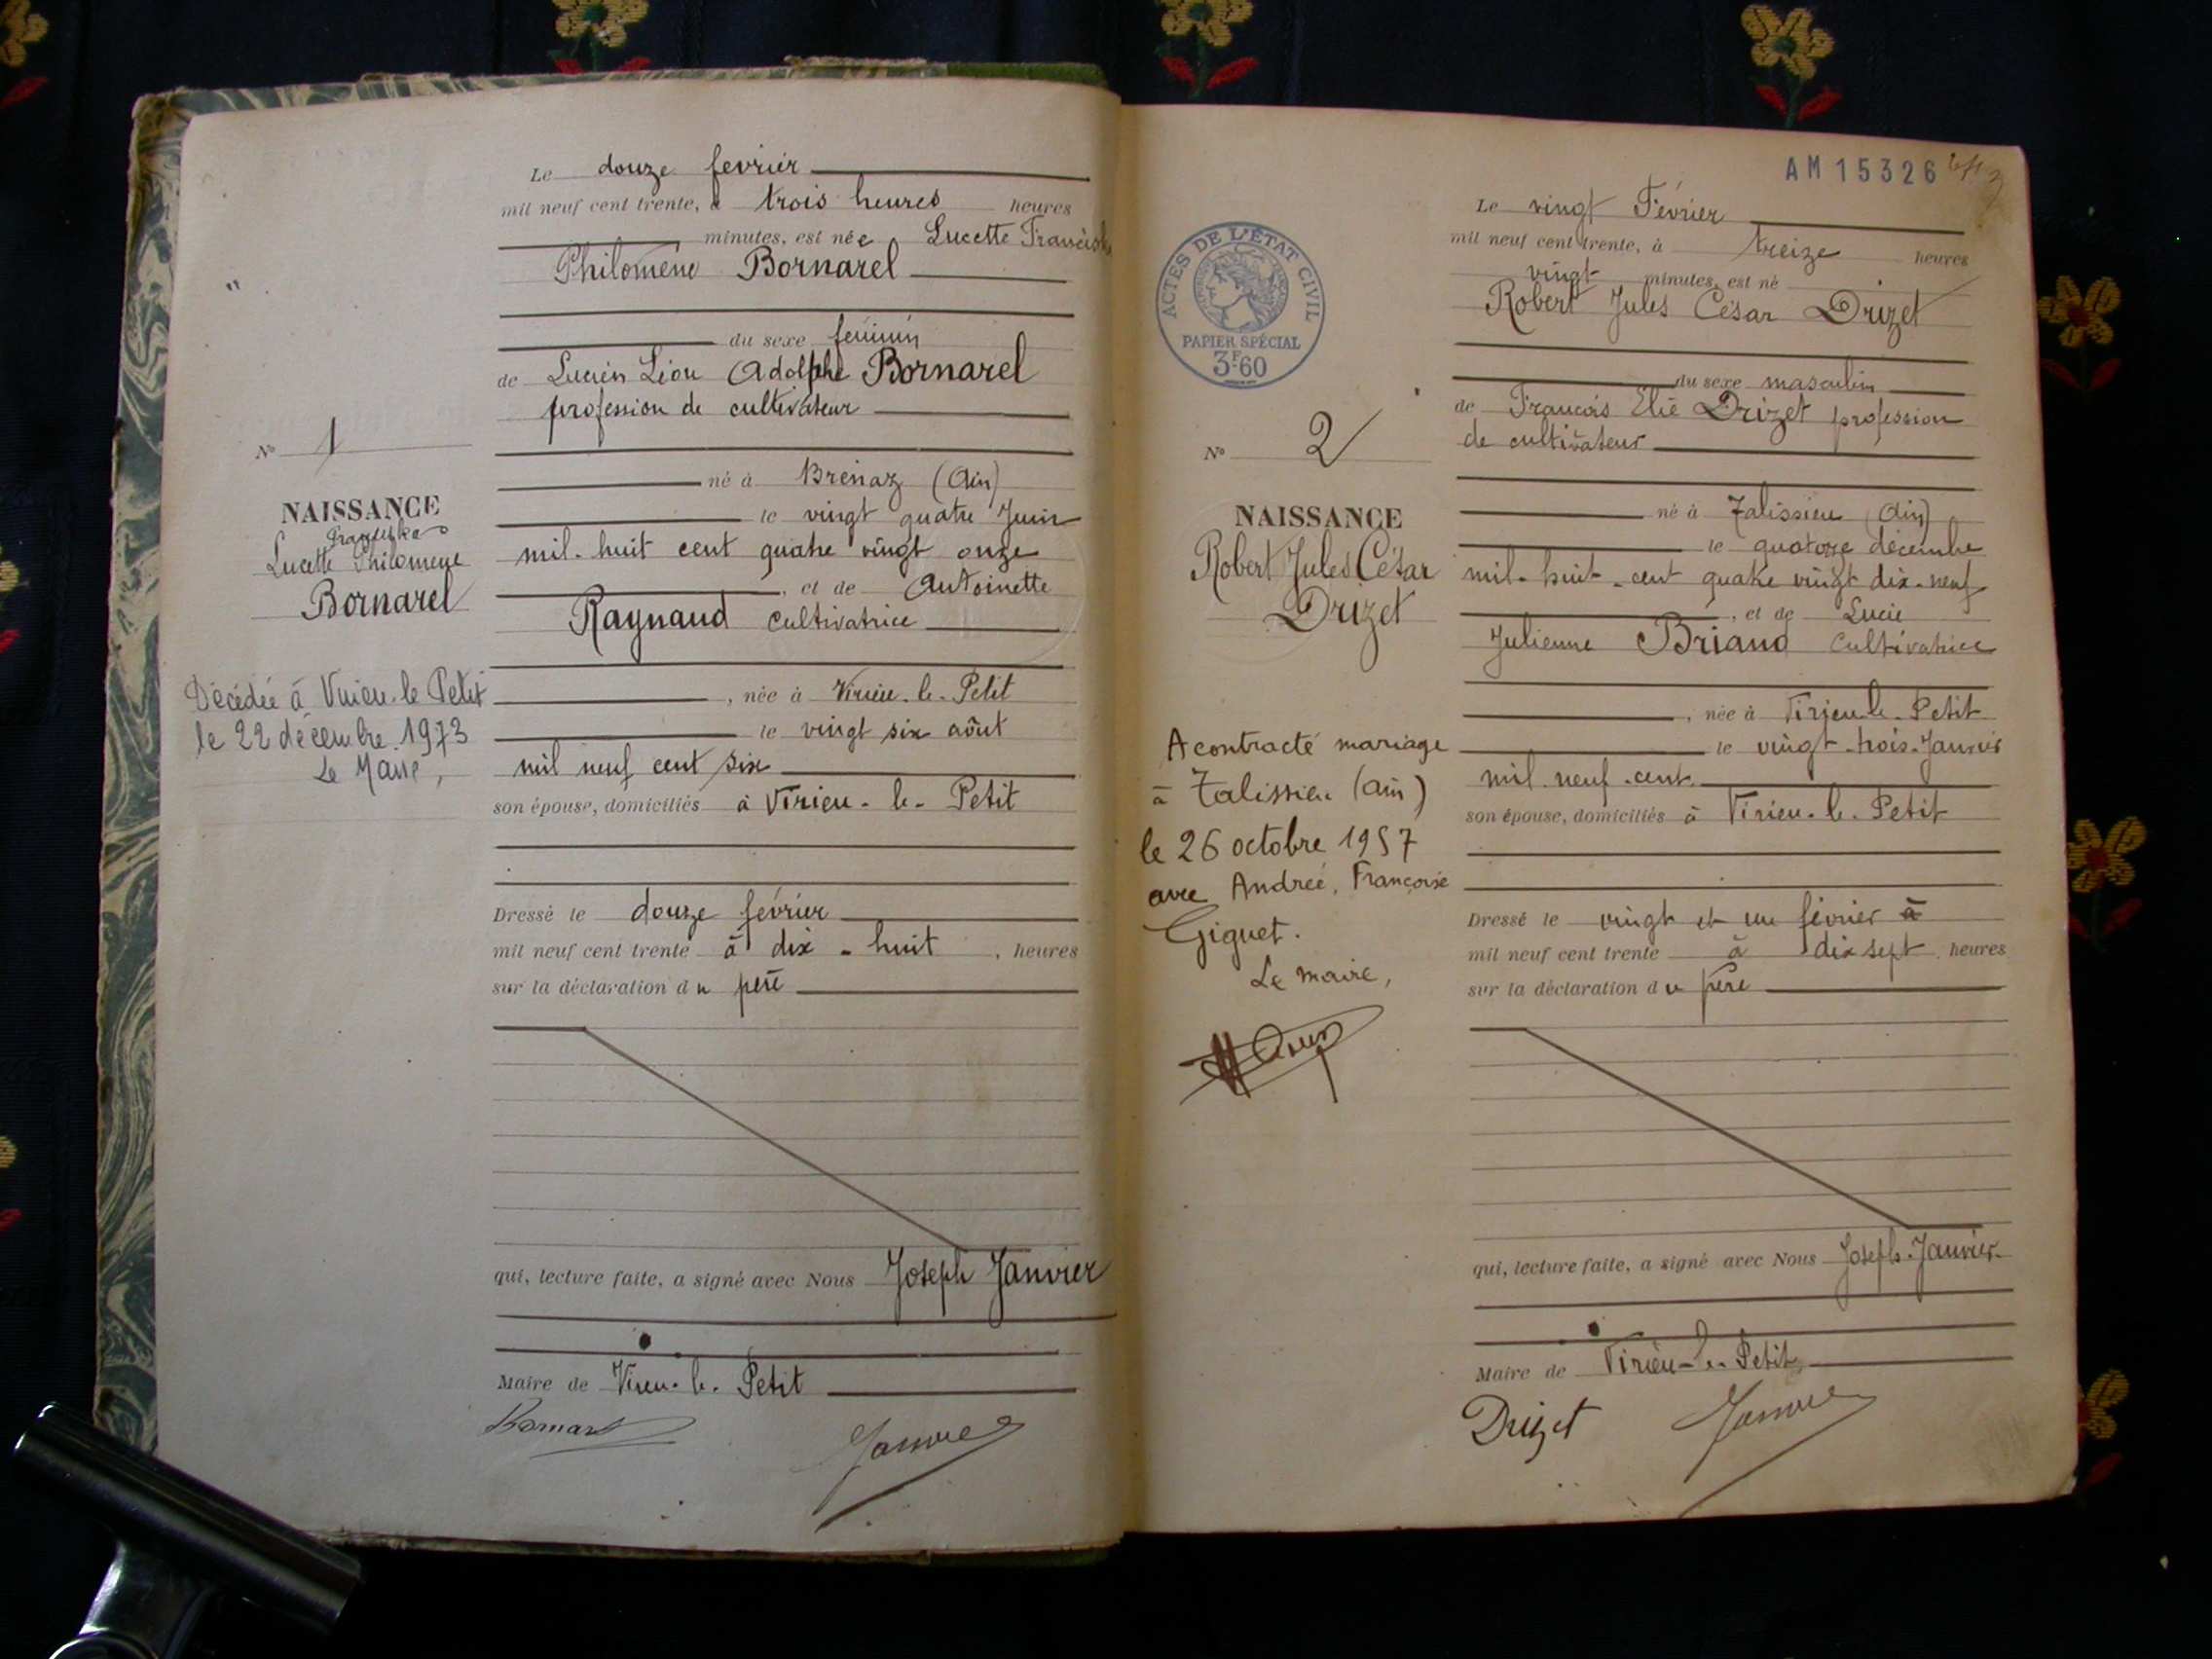 Le douze fevrier
mil neuf cent trente, à trois heures heures
minutes, est née Lucette Franciska
Philomène Bornarel
du sexe féminin
de Lucien Léon Adolphe Bornarel
profession de cultivateur
né à Brénaz (Ain)
le vingt quatre Juin
mil-huit cent quatre vingt onze
, et de Antoinette
Raynaud cultivatrice
, née à Virieu-le-Petit
le vingt six août
mil neuf cent six
son épouse, domiciliés à Virieu-le-Petit
Dressé le douze février
mil neuf cent trente à dix-huit , heures
sur la déclaration du père
qui, lecture faite, a signé avec Nous Joseph Janvier
Maire de Virieu-le-Petit
Bornarel Janvier
No 1
NAISSANCE
Franciska
Lucette Philomène
Bornarel
Décédée à Virieu-le Petit
le 22 décembre 1973
Le Maire,
AM 15326
ACTES DE L'ÉTAT CIVIL
PAPIER SPÉCIAL
3F60
No 2
NAISSANCE
Robert Jules César
Drizet
A contracté mariage
à Talissieu (Ain)
le 26 octobre 1957
avec Andrée, Françoise
Giguet.
Le maire,
Le vingt Février
mil neuf cent trente, à treize heures
vingt minutes, est né
Robert Jules César Drizet
du sexe masculin
de François Elie Drizet profession
de cultivateur
né à Talissieu (Ain)
le quatorze décembre
mil-huit-cent quatre vingt dix-neuf
, et de Lucie
Julienne Briand cultivatrice
, née à Virieu-le-Petit
le vingt-trois-Janvier
mil-neuf-cent
son épouse, domiciliés à Virieu-le-Petit
Dressé le vingt et un février à
mil neuf cent trente à dix sept heures
sur la déclaration du père
qui, lecture faite, a signé avec Nous Joseph-Janvier
Maire de Virieu-le-Petit
Drizet Janvier